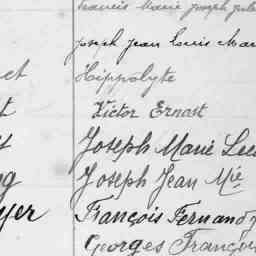 Francis Marie Joseph Jules
Joseph Jean Louis Mar
et Hippolyte
t Victor Ernest
Joseph Marie Leo
g Joseph Jean Mie
yer François Fernand
Georges François